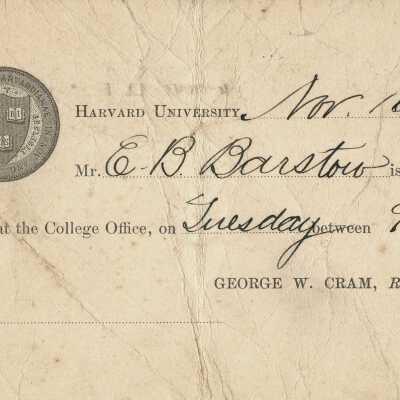 HARVARD UNIVERSITY, Nov. 1
Mr. E. B. Barstow is
at the College Office, on Tuesday between
GEORGE W. CRAM, R